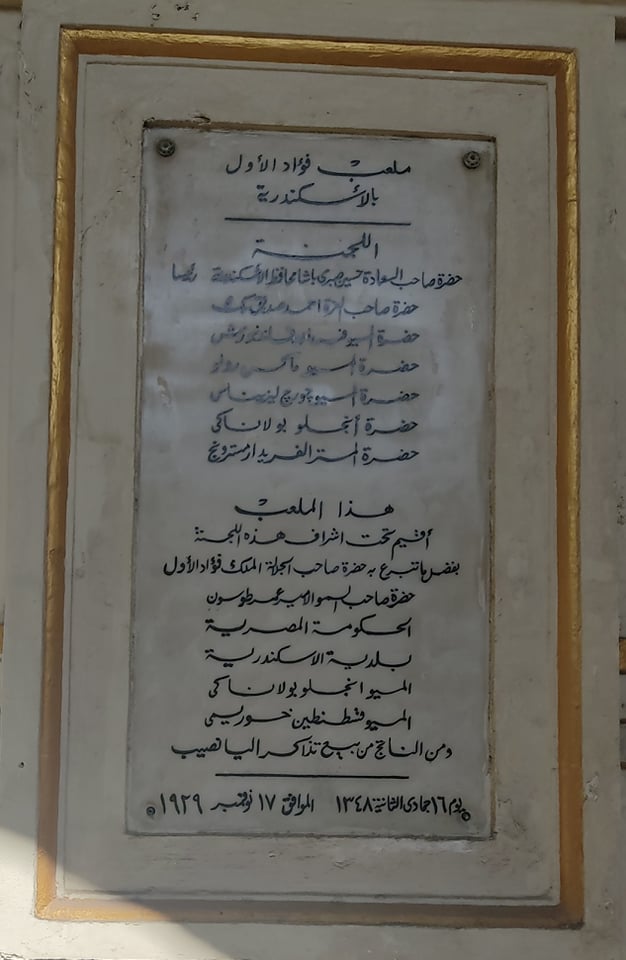 ملعب فؤاد الأول
بالأسكندرية
اللجنة
حضرة صاحب السعادة حسين صبرى باشا محافظ الأسكندرية رئيسا
حضرة صاحب العزة احمد صديق بك
حضرة المسيو
حضرة المسيو ماكس رولو
حضرة المسيو چورچ
حضرة أنجلو بولاناكى
حضرة المستر الفريد ارمسترونج
هذا الملعب
أقيم تحت اشراف هذه اللجنة
بفضل ما تبرع به حضرة صاحب الجلالة الملك فؤاد الأول
حضرة صاحب السمو الامير عمر طوسون
الحكومة المصرية
بلدية الاسكندرية
المسيو انجلو بولاناكى
المسيو قسطنطين خوريمى
ومن الناتج من بيع تذاكر اليانصيب
يوم ١٦ جمادى الثانية ١٣٤٨ الموافق ١٧ نوفمبر ١٩٢٩